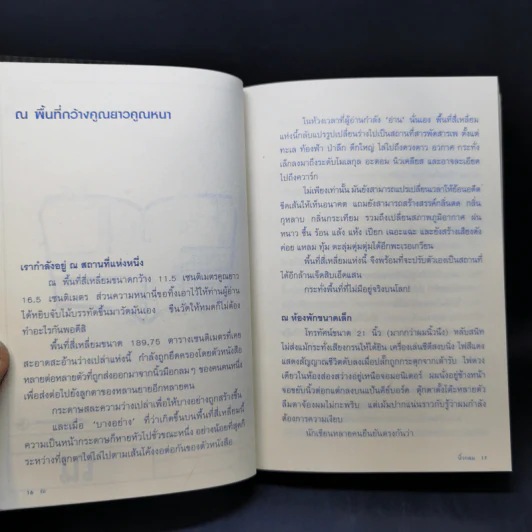 ณ พื้นที่กว้างคูณยาวคูณหนา
เรากำลังอยู่ ณ สถานที่แห่งหนึ่ง
ณ พื้นที่สี่เหลี่ยมขนาดกว้าง 11.5 เซนติเมตรคูณยาว
16.5 เซนติเมตร ส่วนความหนานี่ขอทิ้งเอาไว้ให้ท่านผู้อ่าน
ได้หยิบจับไม้บรรทัดขึ้นมาวัดมันเอง ขืนวัดให้หมดก็ไม่ต้อง
ทำอะไรกันพอดีสิ
พื้นที่สี่เหลี่ยมขนาด 189.75 ตารางเซนติเมตรที่เคย
สะอาดสะอ้านว่างเปล่าแห่งนี้ กำลังถูกยึดครองโดยตัวหนังสือ
หลายต่อหลายตัวที่ถูกส่งออกมาจากนิ้วมือกลมๆ ของคนคนหนึ่ง
เพื่อส่งต่อไปยังลูกตาของหลานยายอีกหลายคน
กระดาษสละความว่างเปล่าเพื่อให้บางอย่างถูกสร้างขึ้น
และเมื่อ 'บางอย่าง' ที่ว่าเกิดขึ้นบนพื้นที่สี่เหลี่ยมนี้
ความเป็นหน้ากระดาษก็หายหัวไปชั่วขณะหนึ่ง อย่างน้อยที่สุดก็
ระหว่างที่ลูกตาไต่ไล่ไปตามเส้นโค้งงอต่อกันของตัวหนังสือ
16 ณ
ในห้วงเวลาที่ผู้อ่านกำลัง 'อ่าน' นั่นเอง พื้นที่สี่เหลี่ยม
แห่งนี้กลับแปรรูปเปลี่ยนร่างไปเป็นสถานที่สารพัดสารเพ ตั้งแต่
ทะเล ท้องฟ้า ป่าลึก ตึกใหญ่ ไล่ไปถึงดวงดาว อวกาศ กระทั่ง
เล็กลงมาถึงระดับโมเลกุล อะตอม นิวเคลียส และอาจละเอียด
ไปถึงควาร์ก
ไม่เพียงเท่านั้น มันยังสามารถแปรเปลี่ยนเวลาให้ย้อนอดีต
ขีดเส้นให้เห็นอนาคต แถมยังสามารถสร้างสรรค์กลิ่นสด กลิ่น
กุหลาบ กลิ่นกระเทียม รวมถึงเปลี่ยนสภาพภูมิอากาศ ฝน
หนาว ชื้น ร้อน แล้ง แห้ง เปียก เฉอะแฉะ และยังสร้างเสียงดัง
ค่อย แหลม ทุ้ม ตะลุ่มตุ่มตุ้มได้อีกพะเรอเกวียน
พื้นที่สี่เหลี่ยมแห่งนี้ จึงพร้อมที่จะปรับตัวเองเป็นสถานที่
ได้อีกล้านเจ็ดสิบเอ็ดแสน
กระทั่งพื้นที่ที่ไม่มีอยู่จริงบนโลก!
ณ ห้องพักขนาดเล็ก
โทรทัศน์ขนาด 21 นิ้ว (มากกว่าผมนิ้วนึง) หลับสนิท
ไม่ส่งแม้กระทั่งเสียงกรนให้ได้ยิน เครื่องเล่นซีดีสงบนิ่ง ไฟสีแดง
แสดงสัญญาณชีวิตดับลงเมื่อปลั๊กถูกกระตุกจากเต้ารับ ไฟดวง
เดียวในห้องส่องสว่างอยู่เหนือจอมอนิเตอร์ ผมนั่งอยู่ข้างหน้า
จอขยับนิ้วตอกแต่กดลงบนแป้นคีย์บอร์ด ตุ๊กตาตั้งโต๊ะหลายตัว
ลืมตาจ้องผมไม่กะพริบ แต่เม้มปากแน่นราวกับรู้ว่าผมกำลัง
ต้องการความเงียบ
นักเขียนหลายคนยืนยันตรงกันว่า
17